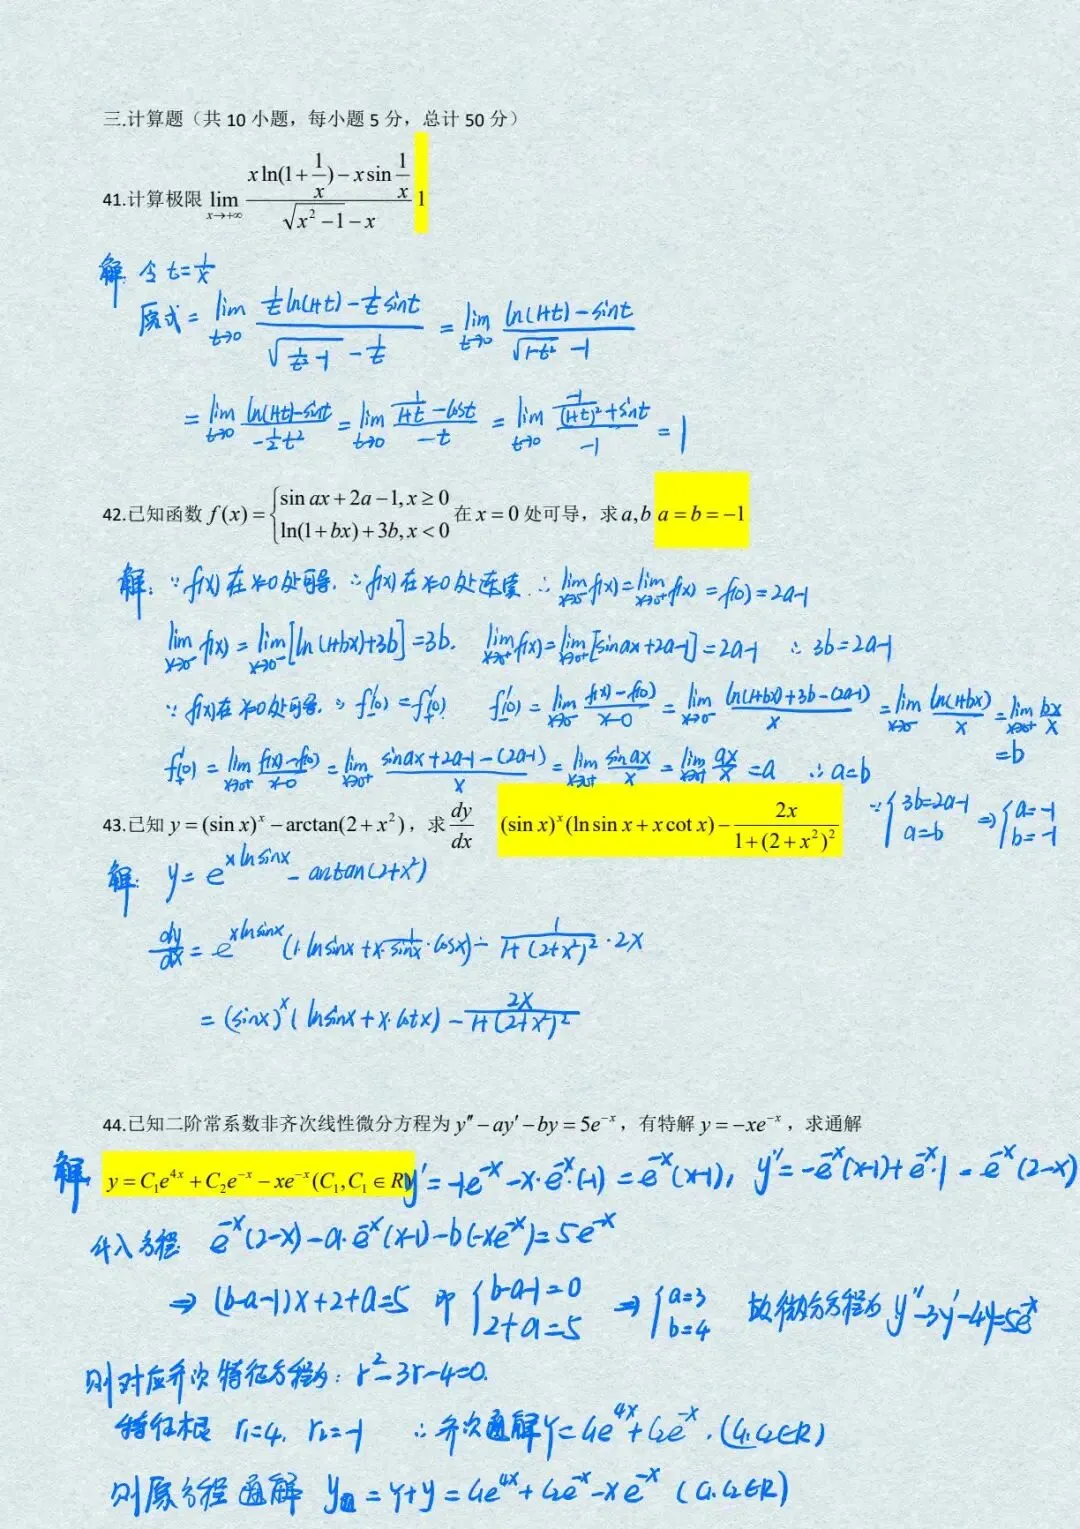 三.计算题（共 10 小题，每小题 5 分，总计 50 分）
41.计算极限 lim_{x→+∞} (x ln(1+1/x) − x sin 1/x)/(√(x²−1) − x) 1
解: 令 t=1/x
原式 = lim_{t→0} (1/t ln(1+t) − 1/t sint)/(√(1/t²−1) − 1/t) = lim_{t→0} (ln(1+t) − sint)/(√(1−t²) − 1)
= lim_{t→0} (ln(1+t)−sint)/(−1/2 t²) = lim_{t→0} (1/(1+t) − cost)/(−t) = lim_{t→0} (−1/(1+t)² + sint)/(−1) = 1
42.已知函数 f(x) = {sin ax + 2a − 1, x ≥ 0; ln(1+bx) + 3b, x < 0 在 x = 0 处可导，求 a,b a = b = −1
解: ∵ f(x) 在 x=0 处可导. ∴ f(x) 在 x=0 处连续. ∴ lim_{x→0⁻} f(x) = lim_{x→0⁺} f(x) = f(0) = 2a−1
lim_{x→0⁻} f(x) = lim_{x→0⁻} [ln(1+bx)+3b] = 3b. lim_{x→0⁺} f(x) = lim_{x→0⁺} [sinax+2a−1] = 2a−1 ∴ 3b=2a−1
∵ f(x)在 x=0 处可导. ∴ f₋'(0) = f₊'(0) f₋'(0) = lim_{x→0⁻} (f(x)−f(0))/(x−0) = lim_{x→0⁻} (ln(1+bx)+3b−(2a−1))/x = lim_{x→0⁻} ln(1+bx)/x = lim_{x→0⁺} bx/x
=b
f₊'(0) = lim_{x→0⁺} (f(x)−f(0))/(x−0) = lim_{x→0⁺} (sinax+2a−1−(2a−1))/x = lim_{x→0⁺} sinax/x = lim_{x→0⁺} ax/x = a ∴ a=b
∵ {3b=2a−1; a=b ⇒ {a=−1; b=−1
43.已知 y = (sin x)^x − arctan(2 + x²)，求 dy/dx (sin x)^x (ln sin x + x cot x) − 2x/(1+(2+x²)²)
解: y = e^{x ln sinx} − arctan(2+x²)
dy/dx = e^{x ln sinx} (1·ln sinx + x·1/sinx·cosx) − 1/(1+(2+x²)²)·2x
= (sinx)^x (ln sinx + x·cotx) − 2x/(1+(2+x²)²)
44.已知二阶常系数非齐次线性微分方程为 y″ − ay′ − by = 5e^{−x}，有特解 y = −xe^{−x}，求通解
解 y = C₁e^{4x} + C₂e^{−x} − xe^{−x}(C₁,C₁ ∈ R) y' = −1e^{−x} − x·e^{−x}·(−1) = e^{−x}(x−1), y'' = −e^{−x}(x−1)+e^{−x}·1 = e^{−x}(2−x)
代入方程 e^{−x}(2−x) − a·e^{−x}(x−1) − b(−xe^{−x}) = 5e^{−x}
⇒ (b−a−1)x+2+a=5 即 {b−a−1=0; 2+a=5 ⇒ {a=3; b=4 故微分方程为 y''−3y'−4y=5e^{−x}
则对应齐次特征方程为: r²−3r−4=0.
特征根 r₁=4, r₂=−1 ∴ 齐次通解Y=C₁e^{4x}+C₂e^{−x}. (C₁.C₂∈R)
则原方程通解 y通 = Y+y = C₁e^{4x}+C₂e^{−x}−xe^{−x} (C₁.C₂∈R)